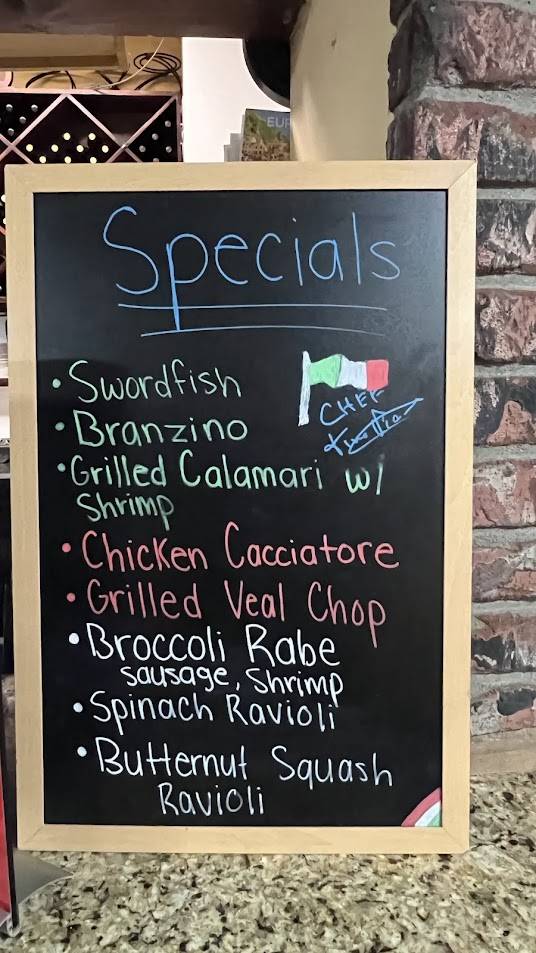 EUR
Specials
• Swordfish
• Branzino
• Grilled Calamari w/
Shrimp
CHEF
• Chicken Cacciatore
• Grilled Veal Chop
• Broccoli Rabe
sausage, Shrimp
• Spinach Ravioli
• Butternut Squash
Ravioli